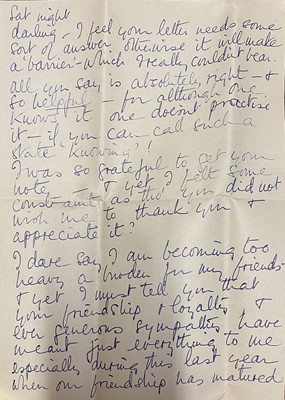 Sat night
darling - I feel your letter needs some
sort of answer, otherwise it will make
a 'barrier' - which I really couldn't bear.
all you say is absolutely right - &
so helpful - for although one
knows it one doesn't practise
it - if you can call such a
state 'knowing'!
I was so grateful to get your
note, - & yet I felt some
constraint as tho' you did not
wish me to thank you &
appreciate it?
I dare say I am becoming too
heavy a burden for my friends -
& yet I must tell you that
your friendship & loyalty &
ever generous sympathy have
meant just everything to me
especially during this last year
when our friendship has matured